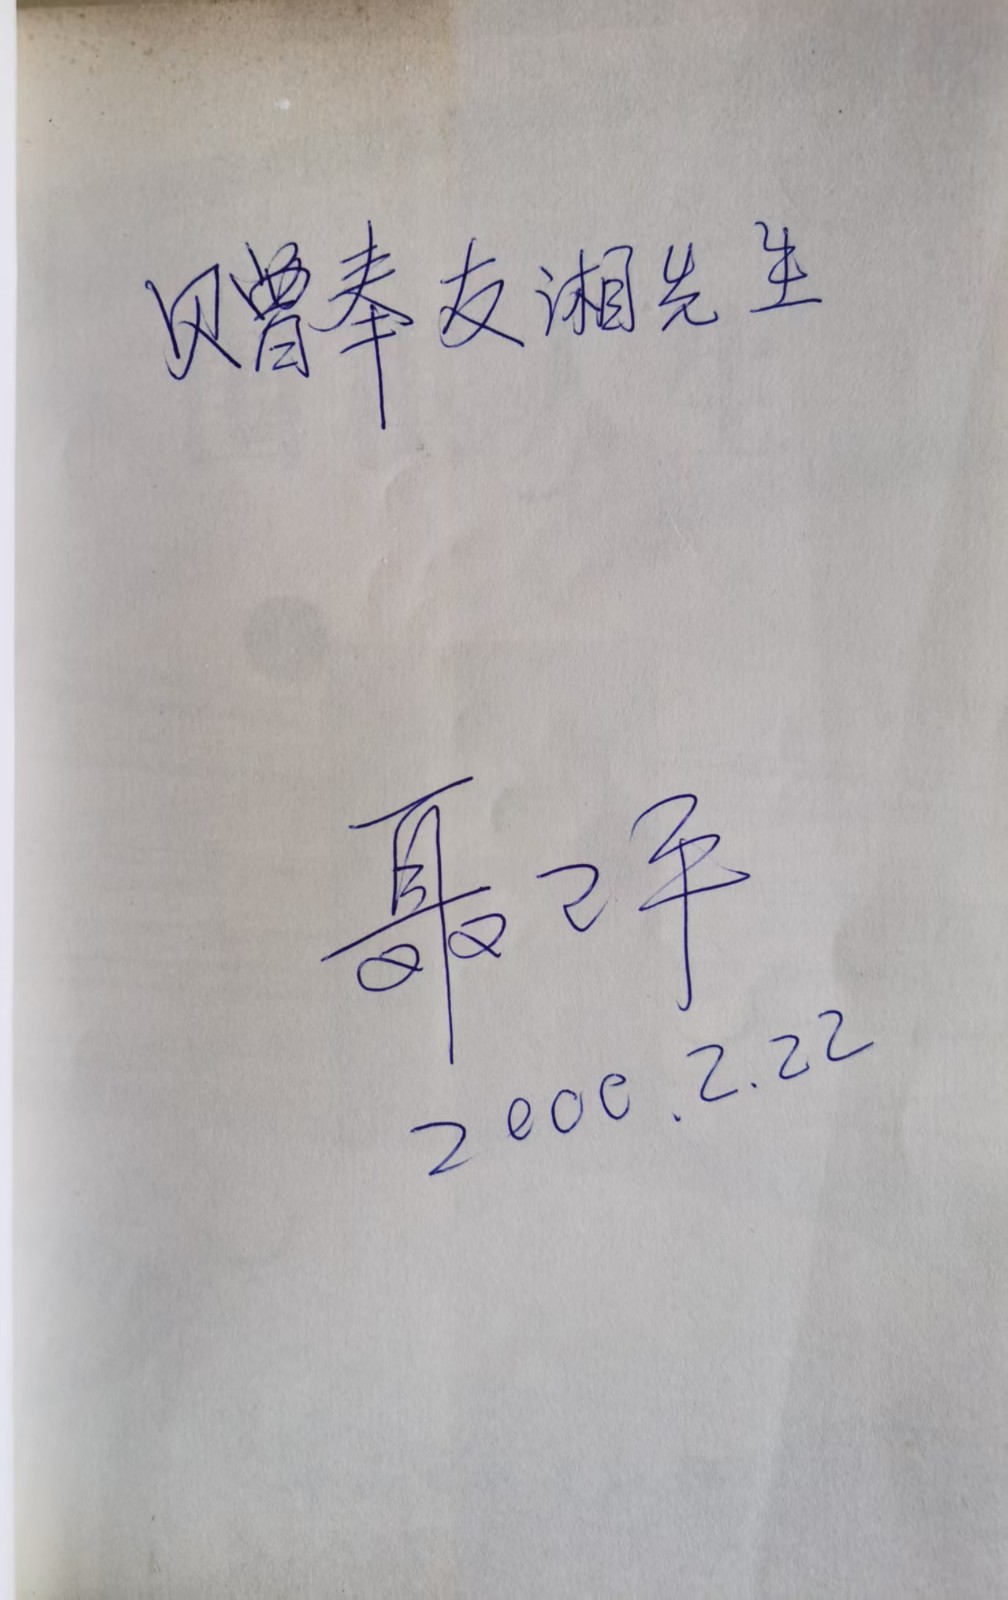 赠奉友湘先生
聂卫平
2000.2.22